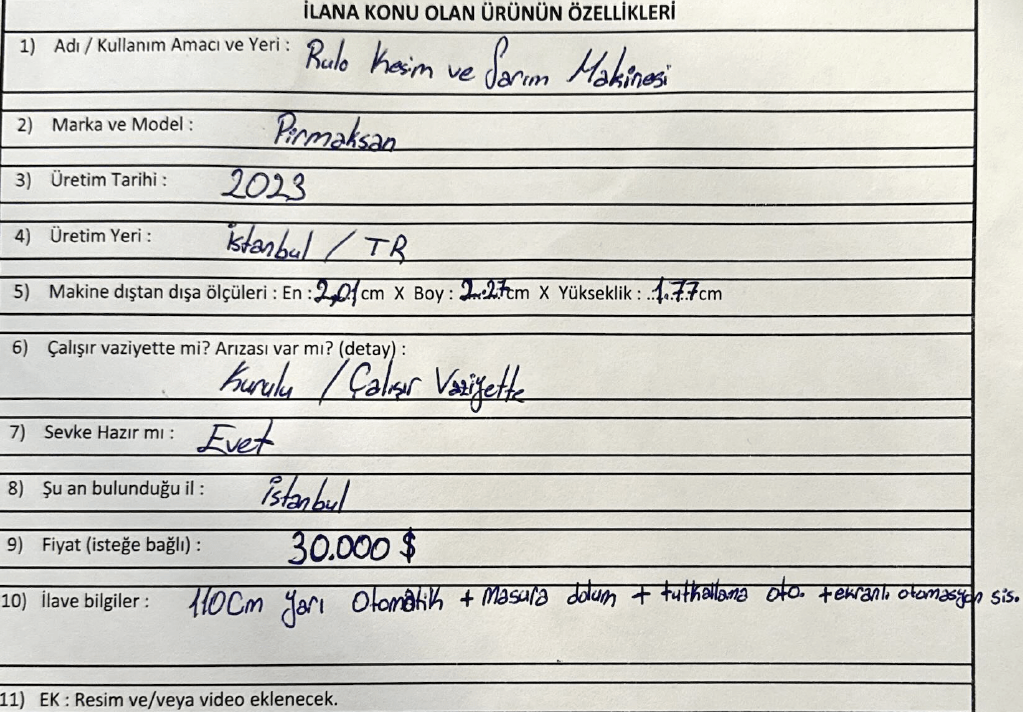 İLANA KONU OLAN ÜRÜNÜN ÖZELLİKLERİ
1) Adı / Kullanım Amacı ve Yeri : Rulo Kesim ve Sarım Makinesi
2) Marka ve Model : Pirmaksan
3) Üretim Tarihi : 2023
4) Üretim Yeri : İstanbul / TR
5) Makine dıştan dışa ölçüleri : En : 2,01 cm X Boy : 2.27 cm X Yükseklik : 1.77 cm
6) Çalışır vaziyette mi? Arızası var mı? (detay) :
Kurulu / Çalışır Vaziyette
7) Sevke Hazır mı : Evet
8) Şu an bulunduğu il : İstanbul
9) Fiyat (isteğe bağlı) : 30.000 $
10) İlave bilgiler : 110 Cm Yarı Otomatik + Masura dolum + tutkallama oto. + ekranlı otomasyon sis.
11) EK : Resim ve/veya video eklenecek.